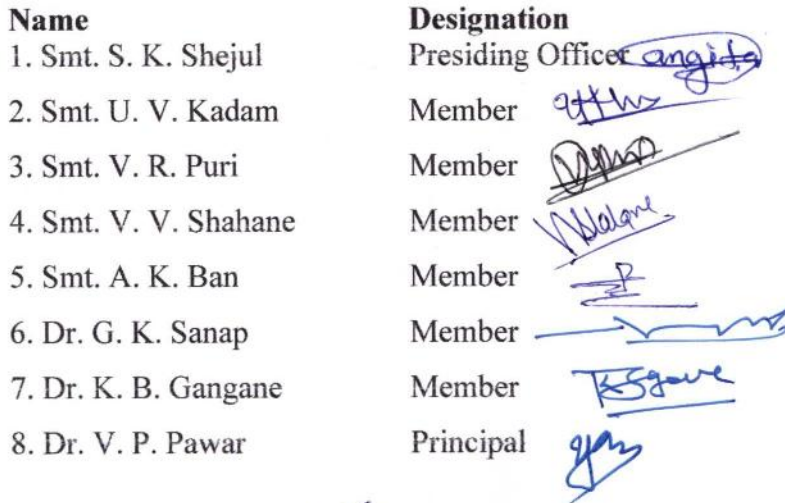 Name Designation
1. Smt. S. K. Shejul Presiding Officer angita
2. Smt. U. V. Kadam Member
3. Smt. V. R. Puri Member
4. Smt. V. V. Shahane Member
5. Smt. A. K. Ban Member
6. Dr. G. K. Sanap Member
7. Dr. K. B. Gangane Member
8. Dr. V. P. Pawar Principal